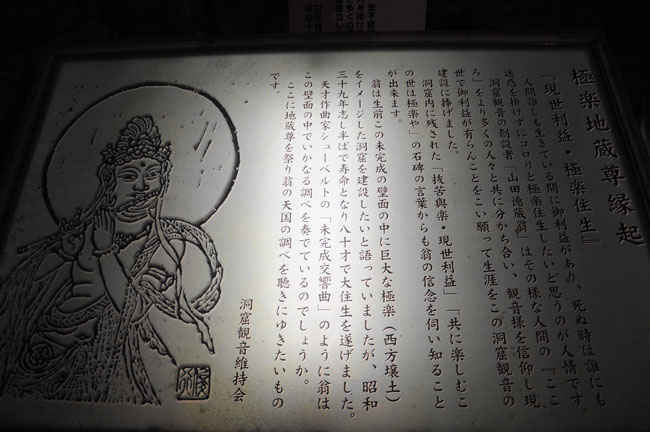 極楽地蔵尊縁起
『現世利益・極楽往生』
人間誰しも生きている間に御利益があり、死ぬ時は誰にも
迷惑を掛けずにコロリと極楽往生したいと思うのが人情です。
洞窟観音の創設者「山田徳蔵翁」はその様な人間の『ここ
ろ』をより多くの人々と共に分かち合い、観音様を信仰し現
世で御利益が有らんことをこい願って生涯をこの洞窟観音の
建設に捧げました。
洞窟内に残された「抜苦与楽・現世利益」「共に楽しむこ
の世は極楽や」の石碑の言葉からも翁の信念を伺い知ること
が出来ます。
翁は生前この未完成の壁面の中に巨大な極楽(西方壌土)
をイメージした洞窟を建設したいと語っていましたが、昭和
三十九年志し半ばで寿命となり八十才で大往生を遂げました。
天才作曲家シューベルトの「未完成交響曲」のように翁は
この壁面の中でいかなる調べを奏でているのでしょうか。
ここに地蔵尊を祭り翁の天国の調べを聴きにゆきたいもの
です。
洞窟観音維持会